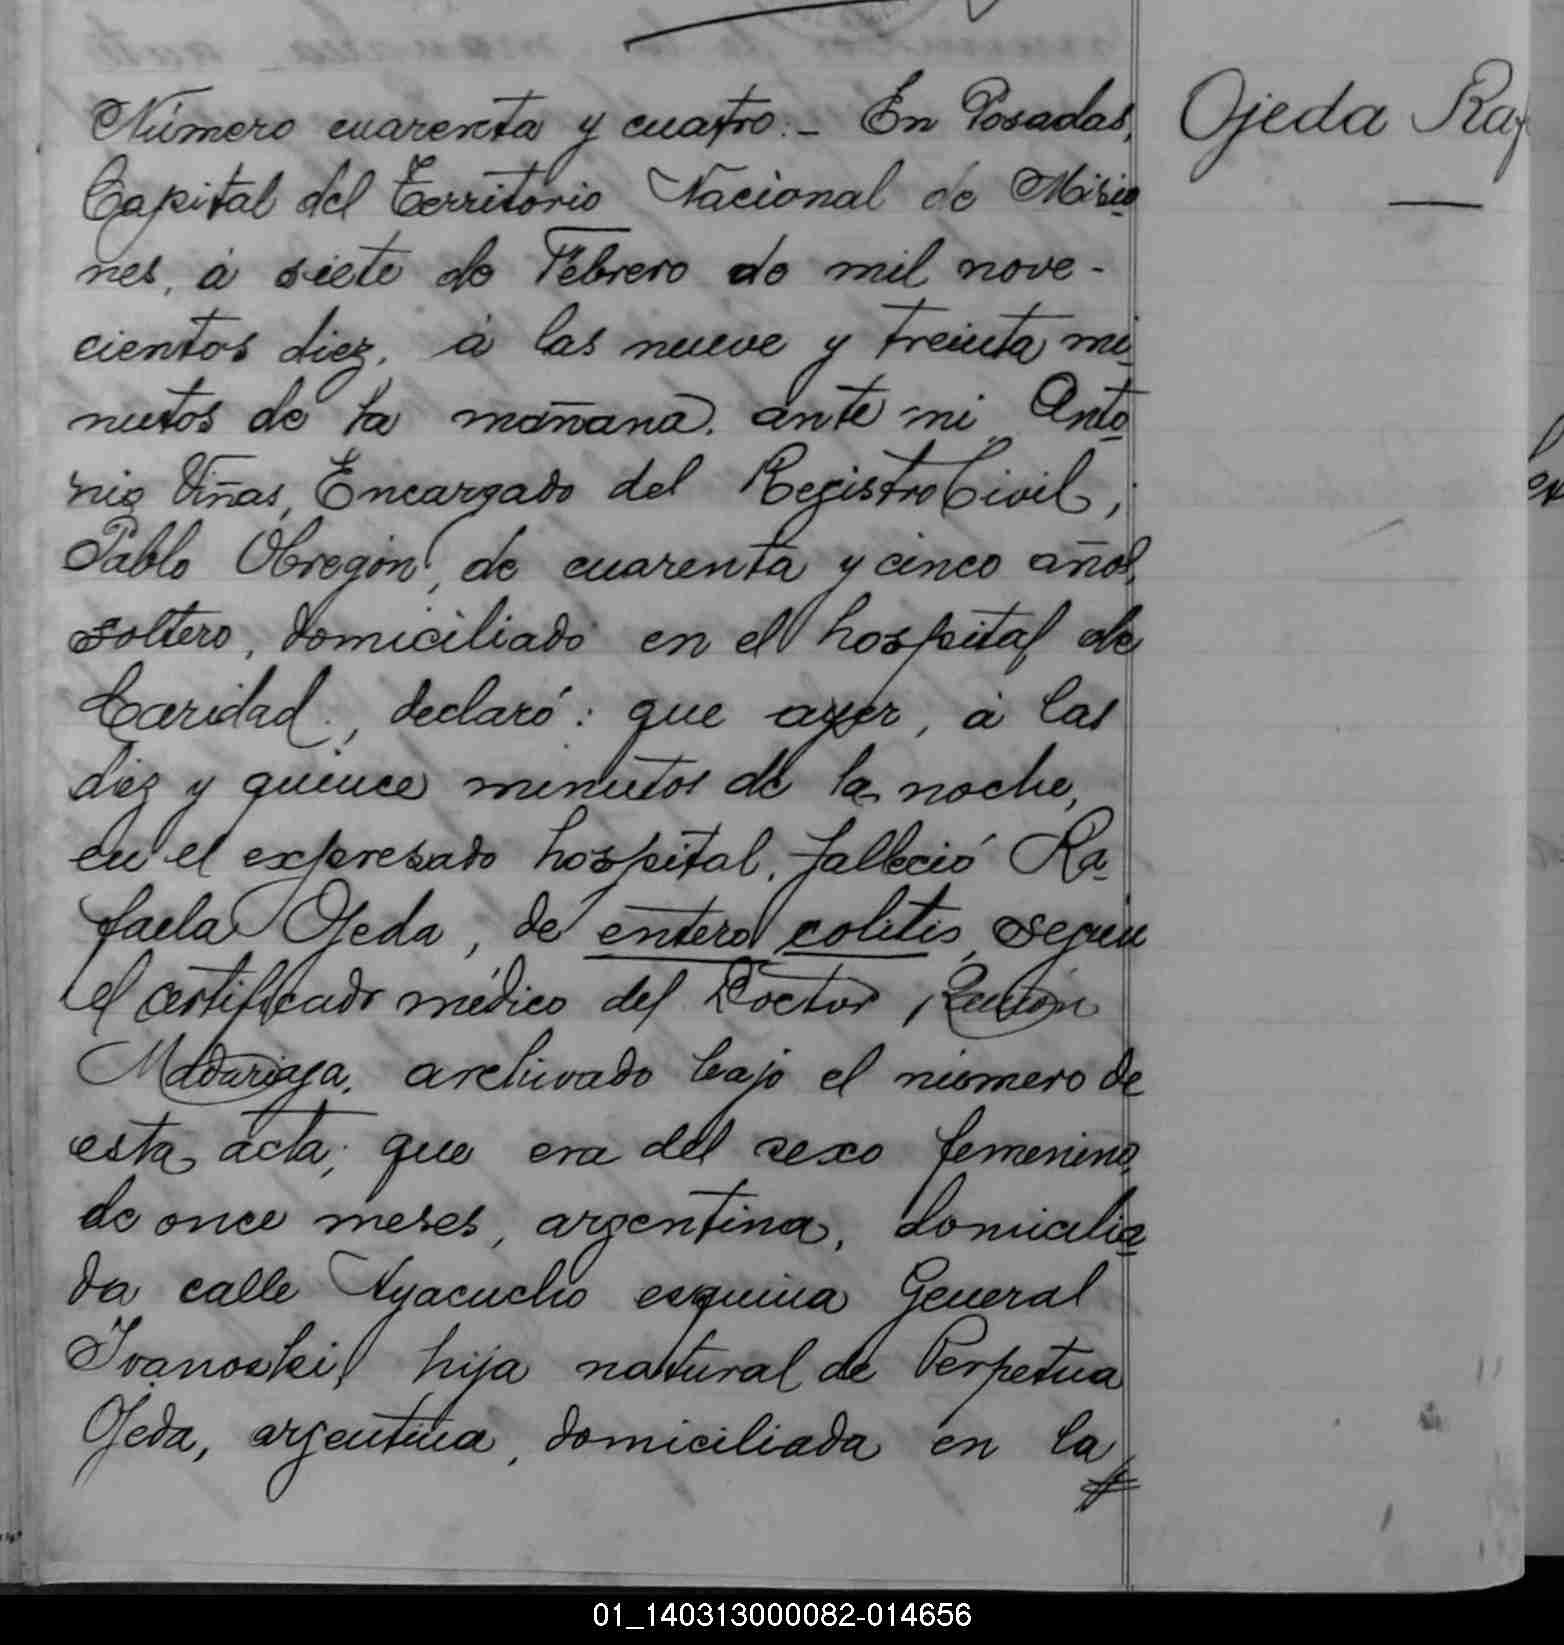 Número cuarenta y cuatro.- En Posadas,
Capital del Territorio Nacional de Misio-
nes, á siete de Febrero de mil nove-
cientos diez, á las nueve y treinta mi-
nutos de la mañana. ante mi Anto-
nio Viñas, Encargado del Registro Civil,
Pablo Obregón, de cuarenta y cinco años,
soltero, domiciliado en el hospital de
Caridad, declaró: que ayer, á las
diez y quince minutos de la noche,
en el expresado hospital, falleció Ra-
faela Ojeda, de entero colitis, según
el certificado médico del Doctor Ramón
Madariaga, archivado bajo el número de
esta acta; que era del sexo femenino,
de once meses, argentina, domicilia-
da calle Ayacucho esquina General
Ivanoski, hija natural de Perpetua
Ojeda, argentina, domiciliada en la
Ojeda Raf
01_140313000082-014656